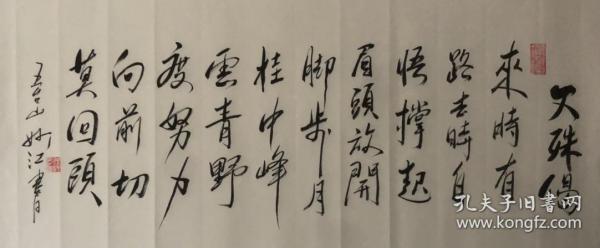 文殊偈
來時有
路去時自
悟撑起
眉頭放開
脚步月
桂中峰
雲青野
度努力
向前切
莫回頭
五台山妙江書
孔夫子旧书网
www.kongfz.com